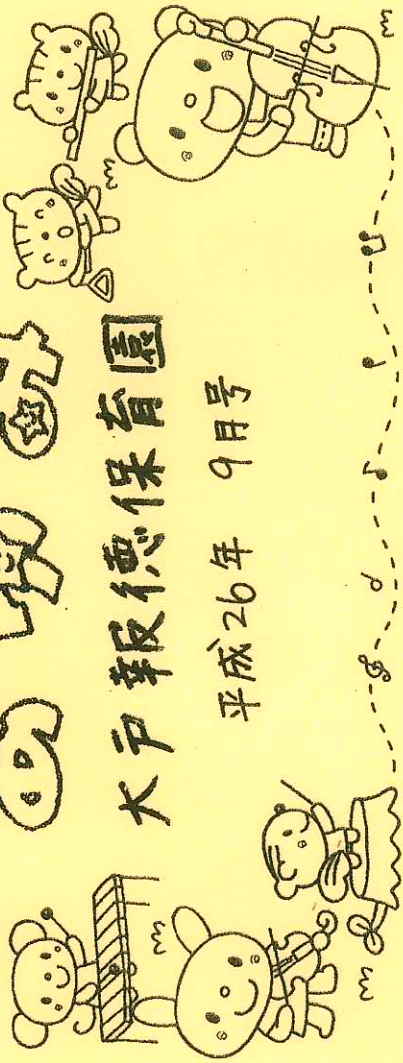 大戸報徳保育園
平成26年 9月号